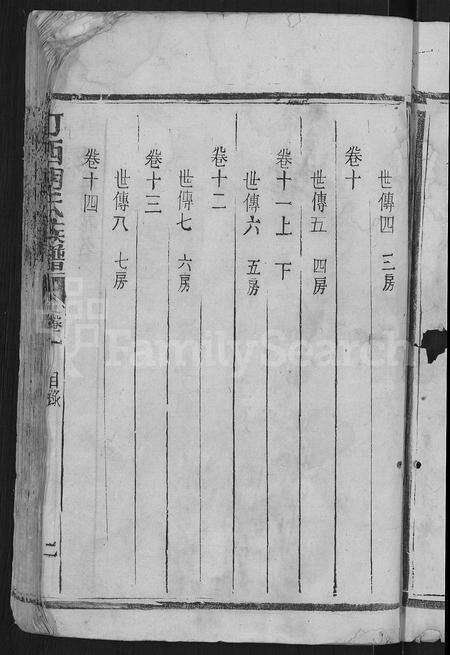 世傳四 三房
卷十
世傳五 四房
卷十一上 下
世傳六 五房
卷十二
世傳七 六房
卷十三
世傳八 七房
卷十四
族譜
卷一 目錄
二
FamilySearch